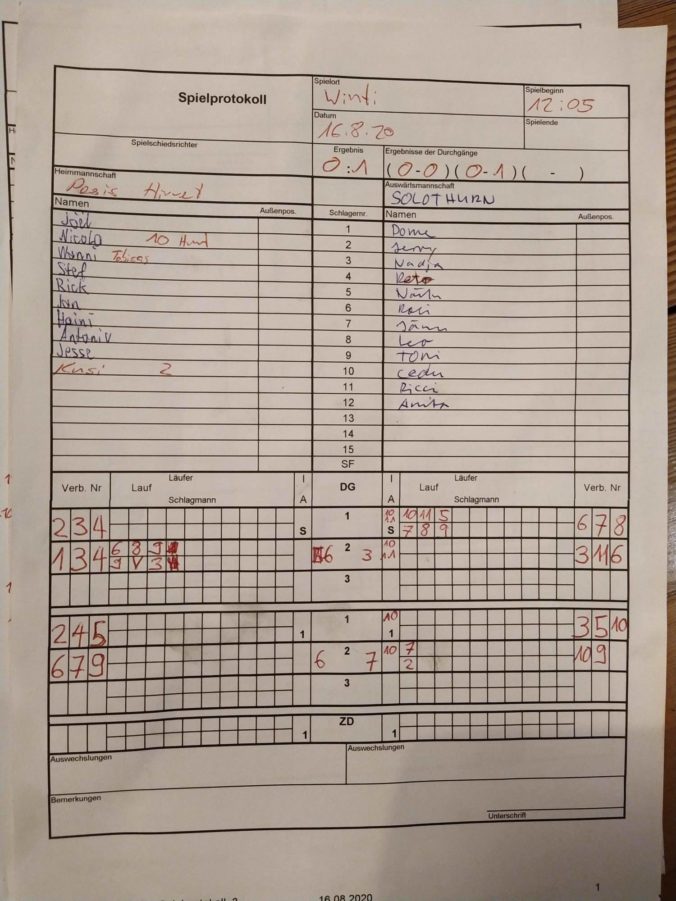 Spielprotokoll
Spielort
Winti
Spielbeginn
12:05
Datum
16.8.20
Spielende
Spielschiedsrichter
Ergebnis
0:1
Ergebnisse der Durchgänge
(0-0)(0-1)( - )
Heimmannschaft
Auswärtsmannschaft
SOLOTHURN
Namen Außenpos. Schlagernr. Namen Außenpos.
Joël 1 Dome
Nicola 10 2 Jenny
3 Nadja
Stef 4 Reto
Rick 5
6
Haini 7
8 Leo
Jesse 9 Tomi
Kusi 2 10 Cedu
11 Ricci
12 Anita
13
14
15
SF
Verb. Nr Lauf Läufer Schlagmann I A DG I A Lauf Läufer Schlagmann Verb. Nr
2 3 4 S 1 10 11 S 10 11 5 7 8 9 6 7 8
1 3 4 6 8 9 9 V 3 6 2 3 10 11 3 11 6
3
2 4 5 1 1 10 1 3 5 10
6 7 9 6 2 7 10 7 2 10 9
3
1 ZD 1
Auswechslungen
Auswechslungen
Bemerkungen
Unterschrift
1
16.08.2020